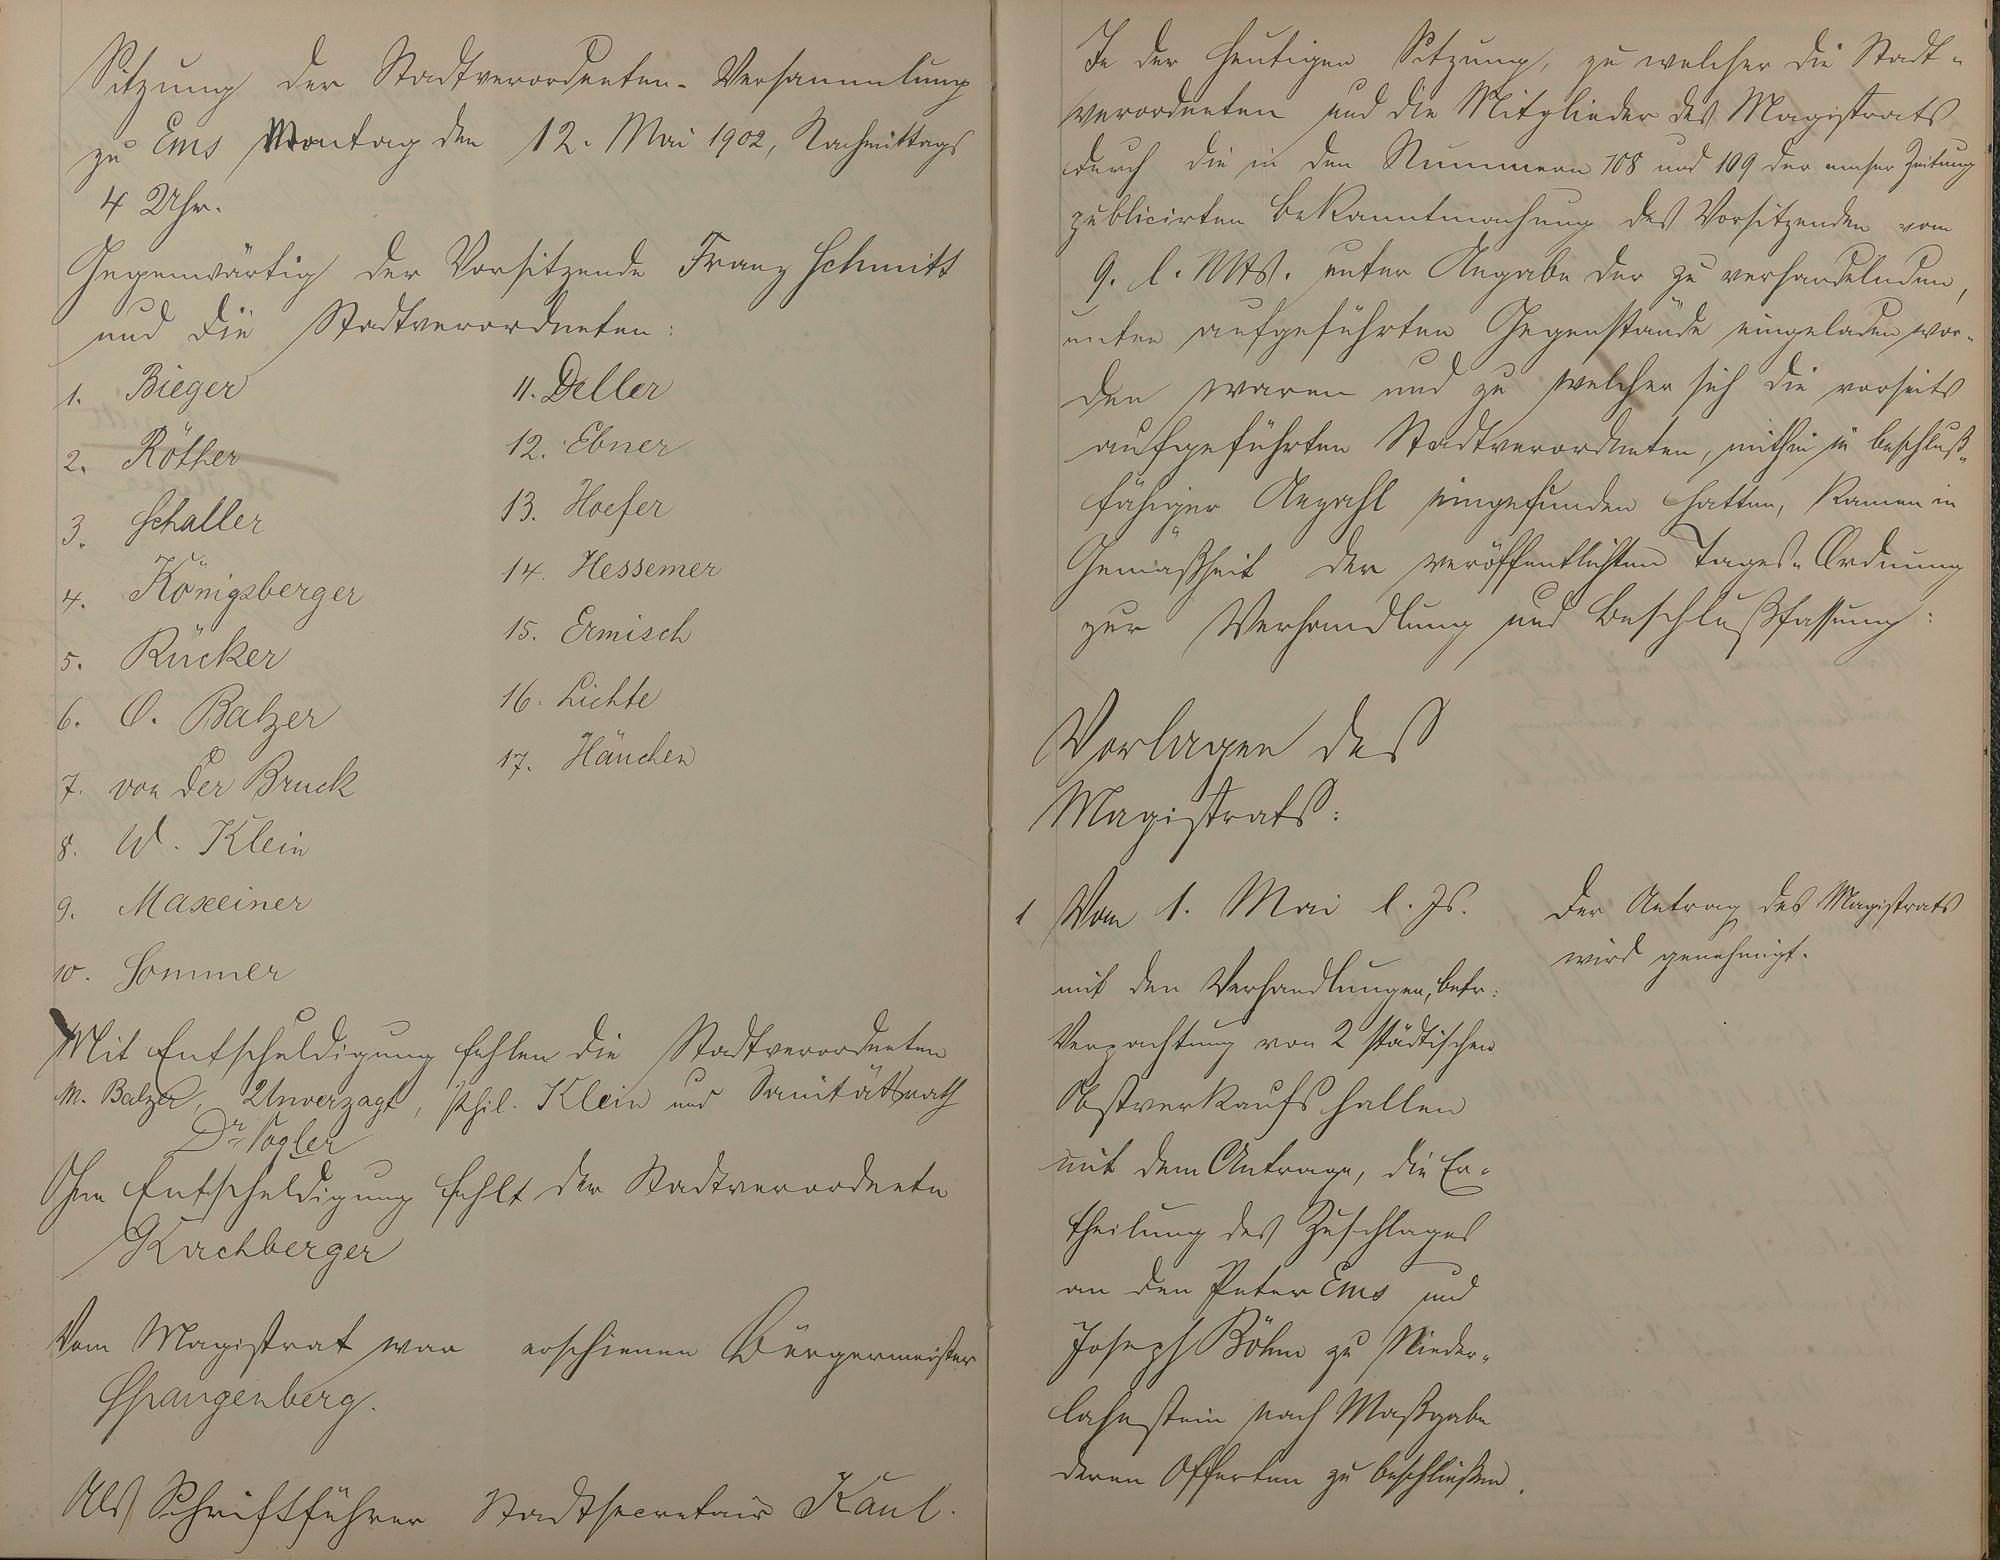 Sitzung der Stadtverordneten-Versammlung
zu Ems Montag den 12. Mai 1902, Nachmittags
4 Uhr.
Gegenwärtig der Vorsitzende Franz Schmitt
und die Stadtverordneten:
1. Bieger
2. Röther
3. Schaller
4. Königsberger
5. Rücker
6. O. Balzer
7. von der Bruck
8. W. Klein
9. Maxeiner
10. Sommer
11. Deller
12. Ebner
13. Hoefer
14. Hessemer
15. Ermisch
16. Lichte
17. Häuchen
Mit Entschuldigung fehlen die Stadtverordneten
M. Balzer, Unverzagt, Phil. Klein und Sanitätsrath
Dr. Vogler
Ohne Entschuldigung fehlt der Stadtverordnete
Kirchberger
Vom Magistrat war erschienen Bürgermeister
Spangenberg.
Als Schriftführer Stadtsecretair Kaul.
In der heutigen Sitzung, zu welcher die Stadt-
verordneten und die Mitglieder des Magistrats
durch die in den Nummern 108 und 109 der emser Zeitung
publicirten Bekanntmachung des Vorsitzenden vom
9. l. Mts. unter Angabe der zu verhandelnden,
unten aufgeführten Gegenstände eingeladen wor-
den waren und zu welcher sich die vorseits
aufgeführten Stadtverordneten, mithin in beschluß-
fähiger Anzahl eingefunden hatten, kamen in
Gemäßheit der veröffentlichten Tages-Ordnung
zur Verhandlung und Beschlußfassung:
Vorlagen des
Magistrats:
1 Vom 1. Mai l. Js.
mit den Verhandlungen, betr:
Verpachtung von 2 städtischen
Obstverkaufshallen
mit dem Antrage, die Er-
theilung des Zuschlages
an den Peter Ems und
Joseph Böhm zu Nieder-
lahnstein nach Maßgabe
deren Offerten zu beschließen.
Der Antrag des Magistrats
wird genehmigt.